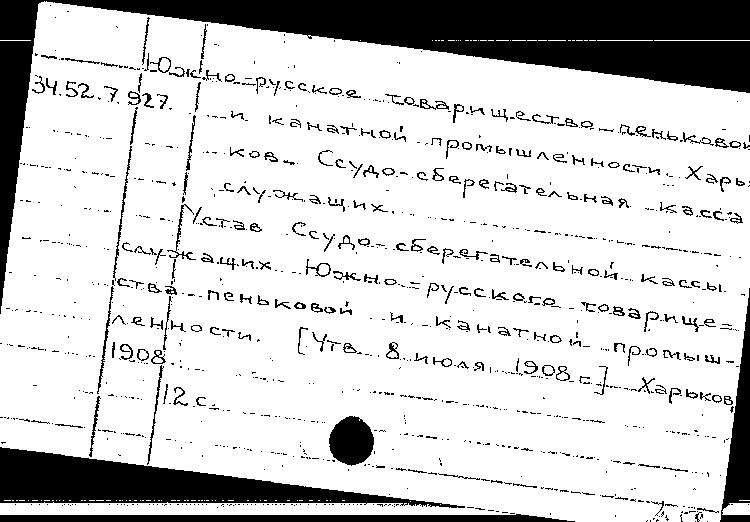 Южно-русское товарищество пеньковой
34.52.7.927.
и канатной промышленности. Харь-
ков. Ссудо-сберегательная касса
служащих.
Устав Ссудо-сберегательной кассы
служащих Южно-русского товарище=
ства пеньковой и канатной промыш-
ленности. [Утв. 8 июля 1908 г.] Харьков,
1908.
12 с.